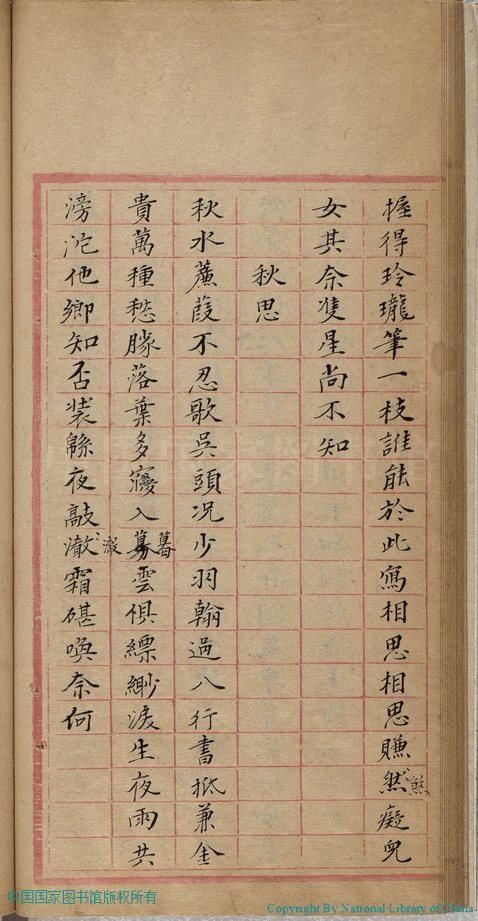 握得玲瓏筆一枝誰能於此寫相思相思賺然癡兒
煞
女其奈隻星尚不知
秋思
秋水蒹葭不忍歌吳頭況少羽翰過八行書抵兼金
貴萬種愁勝落葉多寢入募雲俱縹緲淚生夜雨共
暮
滂沱他鄉知否裝緜夜敲澈霜碪喚奈何
澈
中国国家图书馆版权所有
Copyright By National Library of China